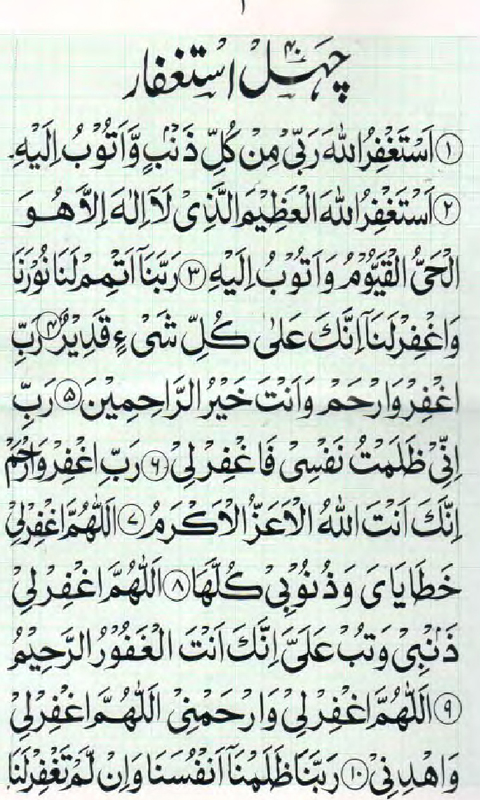 ۱
چہل استغفار ۴۰
۱ اَسْتَغْفِرُ اللهَ رَبِّیْ مِنْ کُلِّ ذَنْۢبٍ وَّاَتُوْبُ اِلَیْهِ
۲ اَسْتَغْفِرُ اللهَ الْعَظِیْمَ الَّذِیْ لَآ اِلٰهَ اِلَّا هُوَ
الْحَیُّ الْقَیُّوْمُ وَاَتُوْبُ اِلَیْهِ ۳ رَبَّنَآ اَتْمِمْ لَنَا نُوْرَنَا
وَاغْفِرْ لَنَآ اِنَّكَ عَلٰی کُلِّ شَیْءٍ قَدِیْرٌ ۴ رَبِّ
اغْفِرْ وَارْحَمْ وَاَنْتَ خَیْرُ الرَّاحِمِیْنَ ۵ رَبِّ
اِنِّیْ ظَلَمْتُ نَفْسِیْ فَاغْفِرْ لِیْ ۶ رَبِّ اغْفِرْ وَارْحَمْ
اِنَّكَ اَنْتَ اللهُ الْاَعَزُّ الْاَکْرَمُ ۷ اَللّٰهُمَّ اغْفِرْ لِیْ
خَطَایَایَ وَذُنُوْبِیْ کُلَّهَا ۸ اَللّٰهُمَّ اغْفِرْ لِیْ
ذَنْۢبِیْ وَتُبْ عَلَیَّ اِنَّكَ اَنْتَ الْغَفُوْرُ الرَّحِیْمُ
۹ اَللّٰهُمَّ اغْفِرْ لِیْ وَارْحَمْنِیْ اَللّٰهُمَّ اغْفِرْ لِیْ
وَاهْدِنِیْ ۱۰ رَبَّنَا ظَلَمْنَآ اَنْفُسَنَا وَاِنْ لَّمْ تَغْفِرْ لَنَا